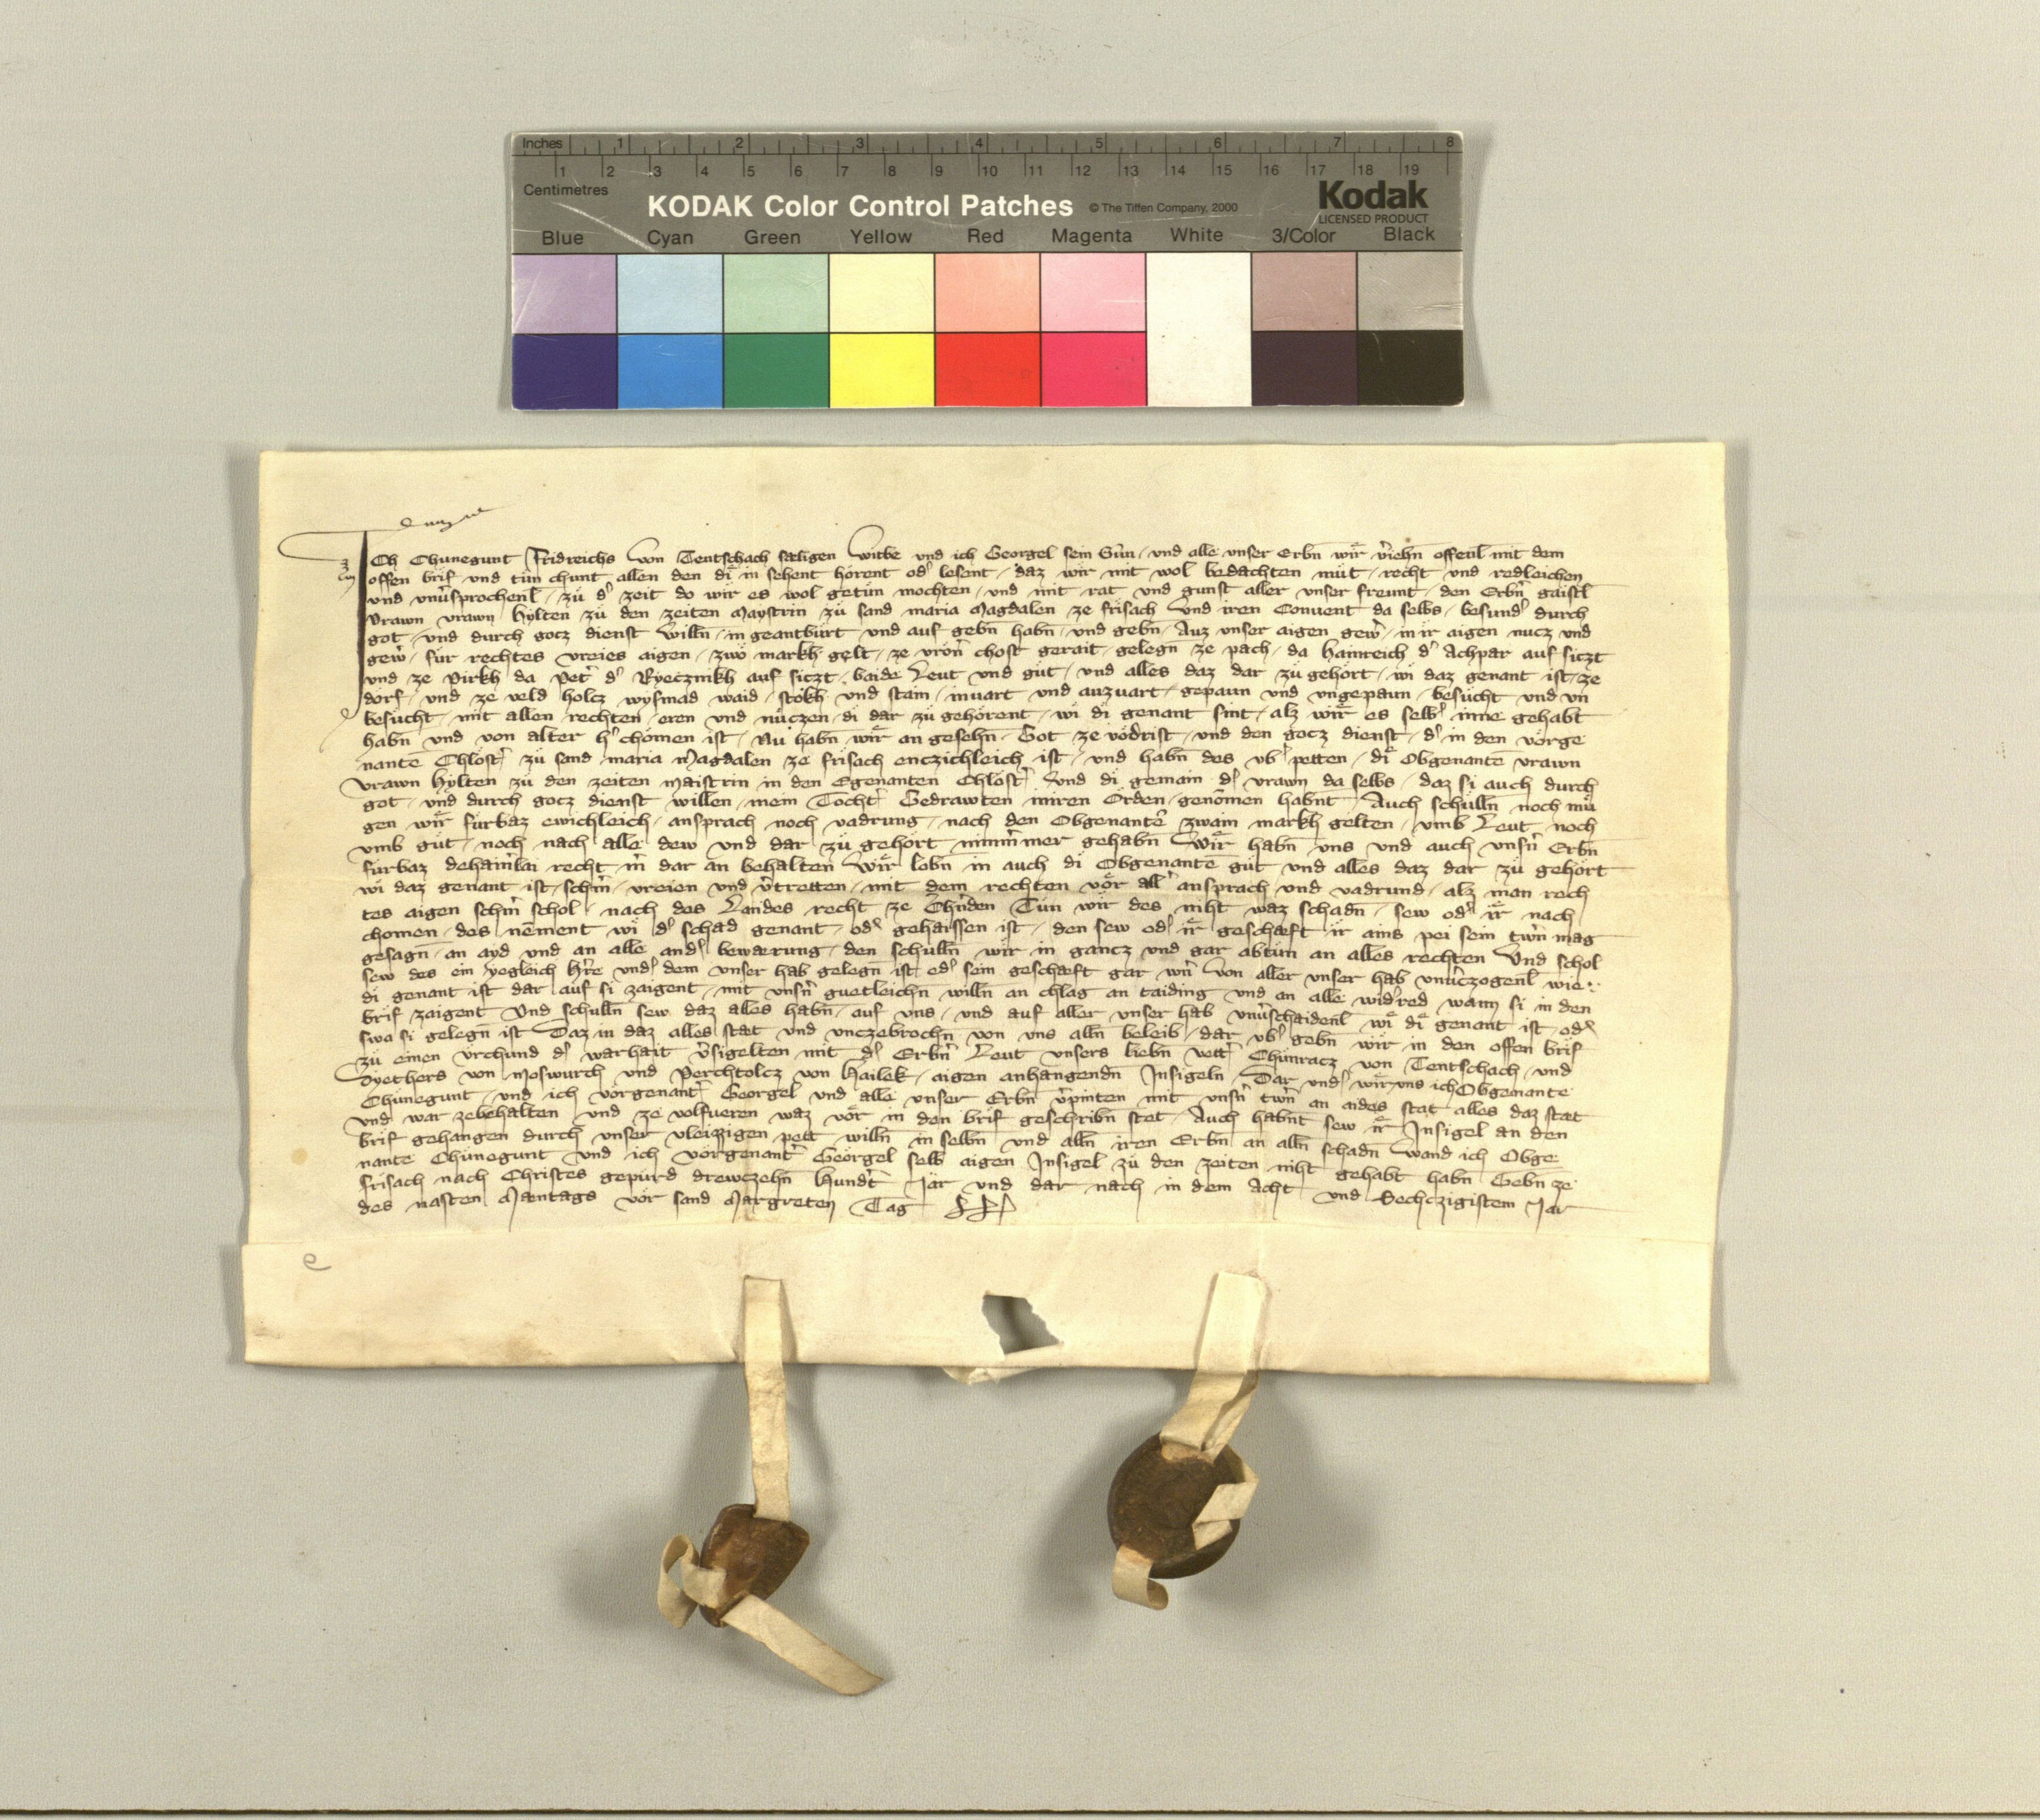 Inches 1 2 3 4 5 6 7 8
1 2 3 4 5 6 7 8 9 10 11 12 13 14 15 16 17 18 19
Centimetres
KODAK Color Control Patches © The Tiffen Company, 2000 Kodak
LICENSED PRODUCT
Blue Cyan Green Yellow Red Magenta White 3/Color Black
ICh Chunegunt Fridreichs von Tentschach sæligen witbe und ich Georgel sein Sün und alle unser Erbn̄ wir v̾iehn̄ offenl̄ mit dem
offen brif und tün chunt allen den di in sehent hörent od̾ lesent daz wir mit wol bedachten müt recht und redleichen
und vnu̾sprochenl̄ zü d̾ zeit do wir es wol getün mochten und mit rat und gunst aller unser freunt den Erbn̄ gaistl̄
vrawn vrawn hylten zü den zeiten Maystrin zü sand maria Magdalen ze frisach und iren Convent da selbs besund̾ durch
got und durch gocz dienst willn̄ in geantburt und auf gebn̄ habn̄ und gebn̄ Auz unser aigen gew̾ in ir aigen nucz und
gew̾ für rechtes vreies aigen zwo markh gelt ze vrön̾ chost gerait gelegn̄ ze pach da hainreich d̾ Achpar auf siczt
und ze Pirkh da Pet̾ d̾ Ryecznikh auf siczt baide Leut und güt und alles daz dar zü gehört wi daz genant ist ze
dorf und ze veld holcz wysmad waid stökh und stain invart und auzvart gepaun und ungepaun besücht und vn
besücht mit allen rechten eren und nüczen di dar zü gehörent wi di genant sint alz wir es selb̾ inne gehabt
habn̄ und von alter h̾ chömen ist Nü habn̄ wir an gesehn̄ Got ze vödrist und den gocz dienst d̾ in den vörge
nantē Chlöst̾ zü sand maria Magdalen ze frisach enczichleich ist und habn̄ des vb̾ petten di Obgenantē vrawn
vrawn hylten zü den zeiten maistrin in den Egenanten Chlöst̾ und di gemain d̾ vrawn da selbs daz si auch durch
got und durch gocz dienst willen mein Tocht̾ Gedrawten in iren Orden genömen habnt Auch schülln̄ noch mü
gen wir fürbaz ewichleich ansprach noch vadrung nach den Obgenantē zwain markh gelten vmb Leut noch
vmb güt noch nach alle dew und dar zü gehört nimm̾mer gehabn̄ wir habn̄ uns und auch unsn̾ Erbn̄
fürbaz dehain̾lai recht m̾ dar an behalten wir lobn̄ in auch di Obgenantē güt und alles daz dar zü gehört
wi daz genant ist schm̾ vreien und v̾tretten mit dem rechten vör all̾ ansprach und vadrund alz man rech
tes aigen schm̾ schol nach des Landes recht ze Ch̾nden Tün wir des niht waz schadn̄ sew od̾ ir nach
chomen des nēment wi d̾ schad genant od̾ gehaissen ist den sew od̾ ir geschæft ir ains pei sein tw̾n mag
gesagn̄ an ayd und an alle and̾ bewærung den schülln̄ wir in gancz und gar abtün an alles rechten Und schol
sew des ein yegleich h̾re und̾ dem unser hab gelegn̄ ist od̾ sein geschæft gar w̾n von aller unser hab vnu̾czogenl̄ wie
di genant ist dar auf si zaigent mit unsn̾ guetleichn̄ willn̄ an chlag an taiding und an alle wid̾red wann si in den
brif zaigent Und schülln̄ sew daz alles habn̄ auf uns und auf aller unser hab vnu̾schaidenl̄ wi di genant ist od̾
swa si gelegn̄ ist Daz in daz alles stæt und unczebrochn̄ von uns alln̄ beleib dar vb̾ gebn̄ wir in den offen brif
zü einen vrchund d̾ warhait v̾sigelten mit d̾ Erbn̾ Leut unsers liebn̄ vett̾ Chünracz von Tentschach und
Dyethers von Moswurch und Perchtolcz von Hailek aigen anhangendn̄ Insigeln Dar und̾ wir uns ich Obgenante
Chunegunt und ich vörgenant̾ Georgel und alle unser Erbn̄ v̾pinten mit unsn̾ tw̾n an aides stat alles daz stæt
und war zebehalten und ze volfueren waz vör in den brif geschribn̄ stet Auch habnt sew ir Insigel an den
brif gehangen durch unser vleizzigen pett willn̄ in selbn̄ und alln̄ iren Erbn̄ an alln̄ schadn̄ Wand ich Obge
nante Chünegunt und ich vörgenant̾ Geörgel selb aigen Insigel zü den zeiten niht gehabt habn̄ Gebn̄ ze
frisach nach Christes gepürd drewczehn̄ hund̾t Iar und dar nach in dem Acht und Sechczigistem Jar
des nasten Mæntags vör sand Margreten Tag
e